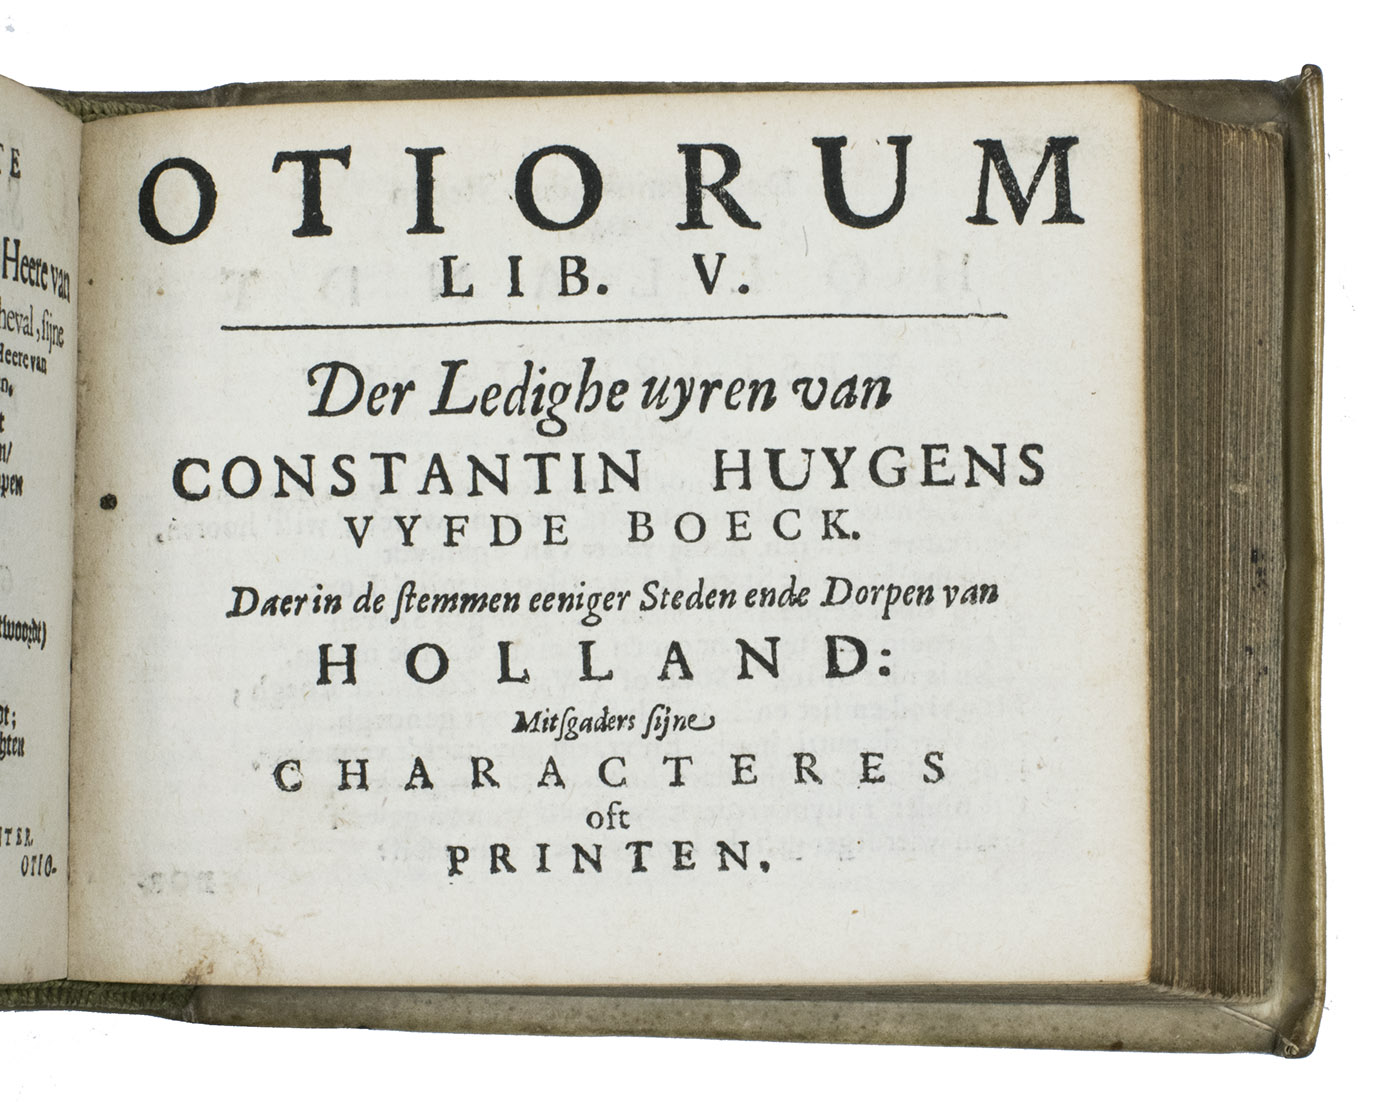 TE
Heere van
heval, ſijne
Heere van
en.
t
n/
pen
twoordt)
dt;
hten
NTER
OTIO-
OTIORUM
LIB. V.
Der Ledighe uyren van
CONSTANTIN HUYGENS
VYFDE BOECK.
Daer in de ſtemmen eeniger Steden ende Dorpen van
HOLLAND:
Mitſgaders ſijne
CHARACTERES
oft
PRINTEN.